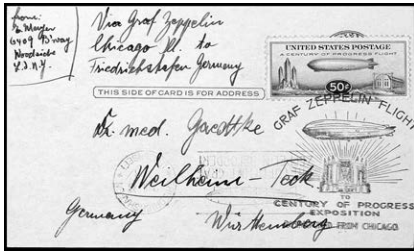 from:
S. Meyer
6409 B'way
Woodside
L.I. N.Y.
Via Graf Zeppelin
Chicago Ill. to
Friedrichshafen Germany
UNITED STATES POSTAGE
A CENTURY OF PROGRESS FLIGHT
50¢
THIS SIDE OF CARD IS FOR ADDRESS
GRAF ZEPPELIN FLIGHT
Dr. med. Goettke
Weilheim-Teck
TO
CENTURY OF PROGRESS
EXPOSITION
FROM CHICAGO
Germany
Württemberg